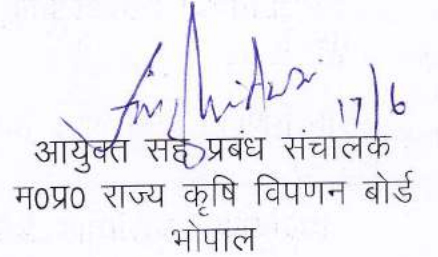 17/6
आयुक्त सह प्रबंध संचालक
म0प्र0 राज्य कृषि विपणन बोर्ड
भोपाल